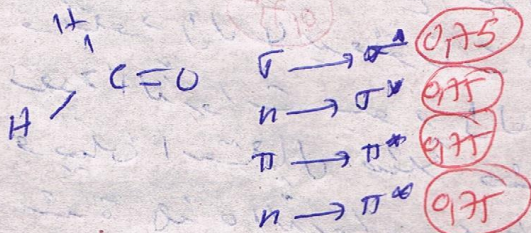 H
H C=O
σ → σ* 0,75
n → σ* 0,75
π → π* 0,75
n → π* 0,75